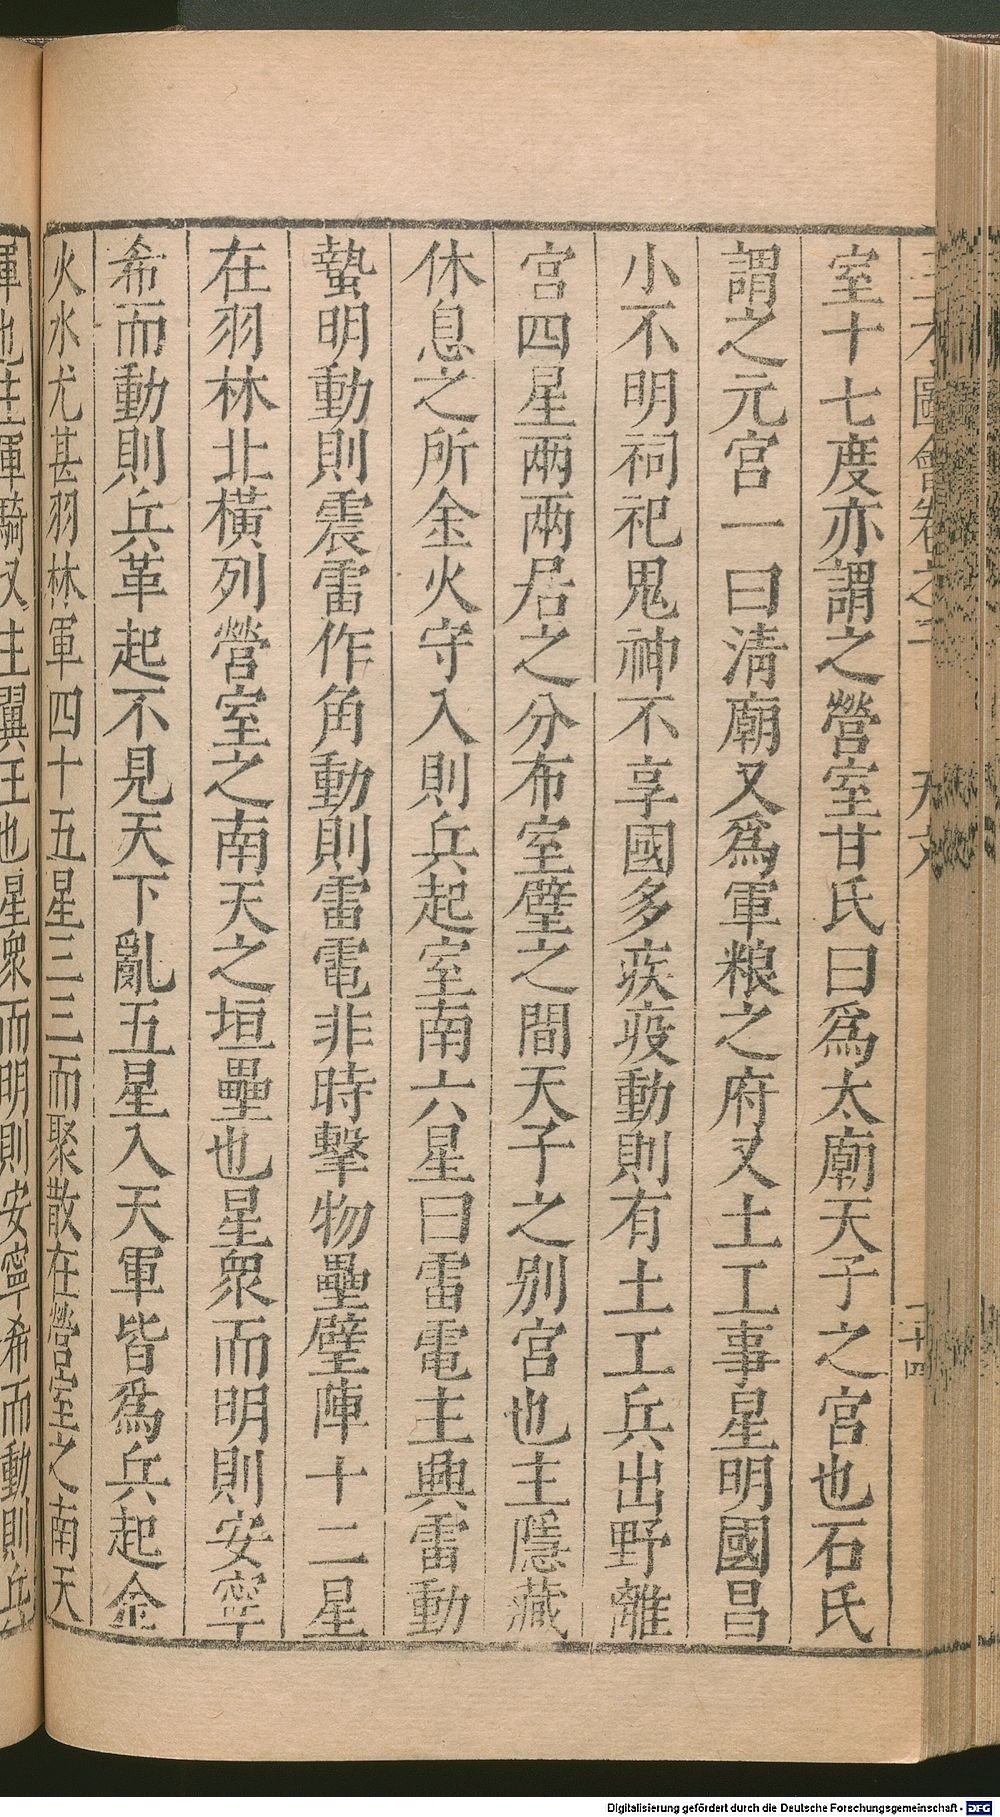 三才圖會卷之三 天文 二十四
室十七度亦謂之營室甘氏曰爲太廟天子之宮也石氏
謂之元宮一曰清廟又爲軍粮之府又土工事星明國昌
小不明祠祀鬼神不享國多疾疫動則有土工兵出野離
宮四星兩兩居之分布室壁之間天子之别宮也主隱藏
休息之所金火守入則兵起室南六星曰雷電主典雷動
蟄明動則震雷作角動則雷電非時擊物壘壁陣十二星
在羽林北横列營室之南天之垣壘也星衆而明則安寧
希而動則兵革起不見天下亂五星入天軍皆爲兵起金
火水尤甚羽林軍四十五星三三而聚散在營室之南天
軍也主軍騎又主翼王也星衆而明則安寧希而動則兵
Digitalisierung gefördert durch die Deutsche Forschungsgemeinschaft - DFG